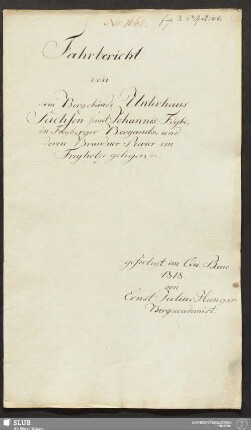 No. 166.
Fahrbericht
von
dem Berggebäude Unterhaus
Sachsen samt Johannes Fdgbe,
in Freyberger Bergamts, und
deren Brander Revier im
Freyholze gelegen
gefertigt im
1818.
von
Ernst Julius Hungar
Bergacademist.
SLUB